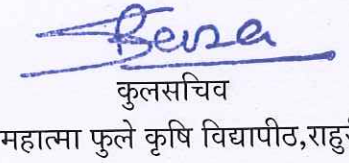 कुलसचिव
महात्मा फुले कृषि विद्यापीठ,